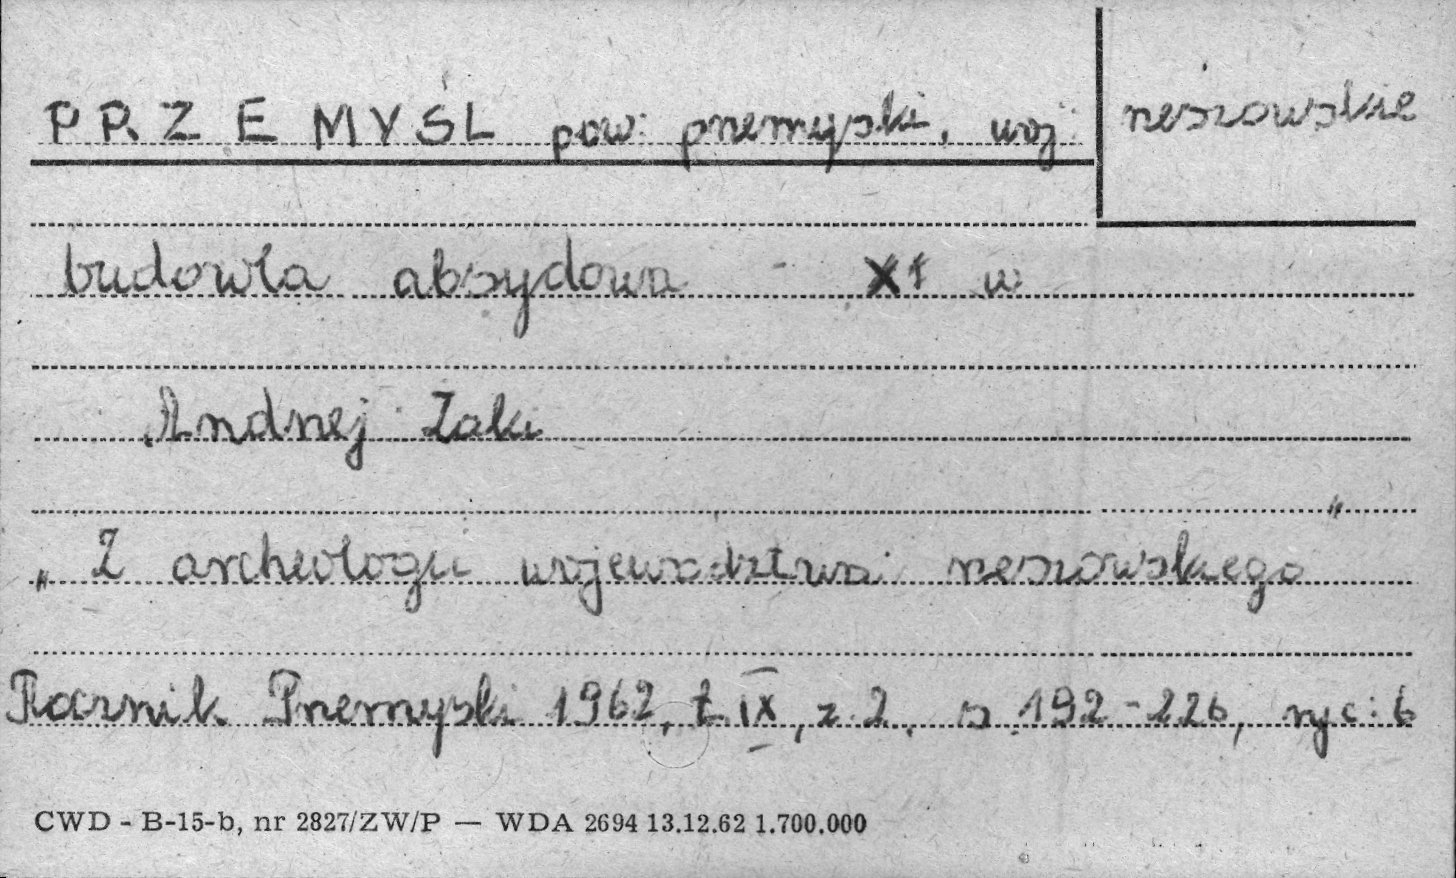 PRZEMYŚL pow: przemyski, woj: rzeszowskie
budowla absydowa - XI w
Andrzej Żaki
"
„ Z archeologii województwa rzeszowskiego
Rocznik Przemyski 1962, t. IX, z. 2, s. 192-226, ryc: 6
CWD - B-15-b, nr 2827/ZW/P — WDA 2694 13.12.62 1.700.000